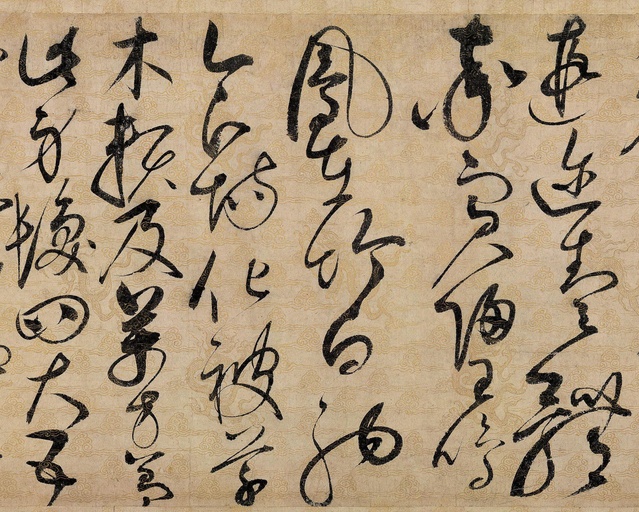 遐迩壹體
率賓歸王鳴
鳳在樹白駒
食場化被草
木賴及萬方蓋
此身髮四大五